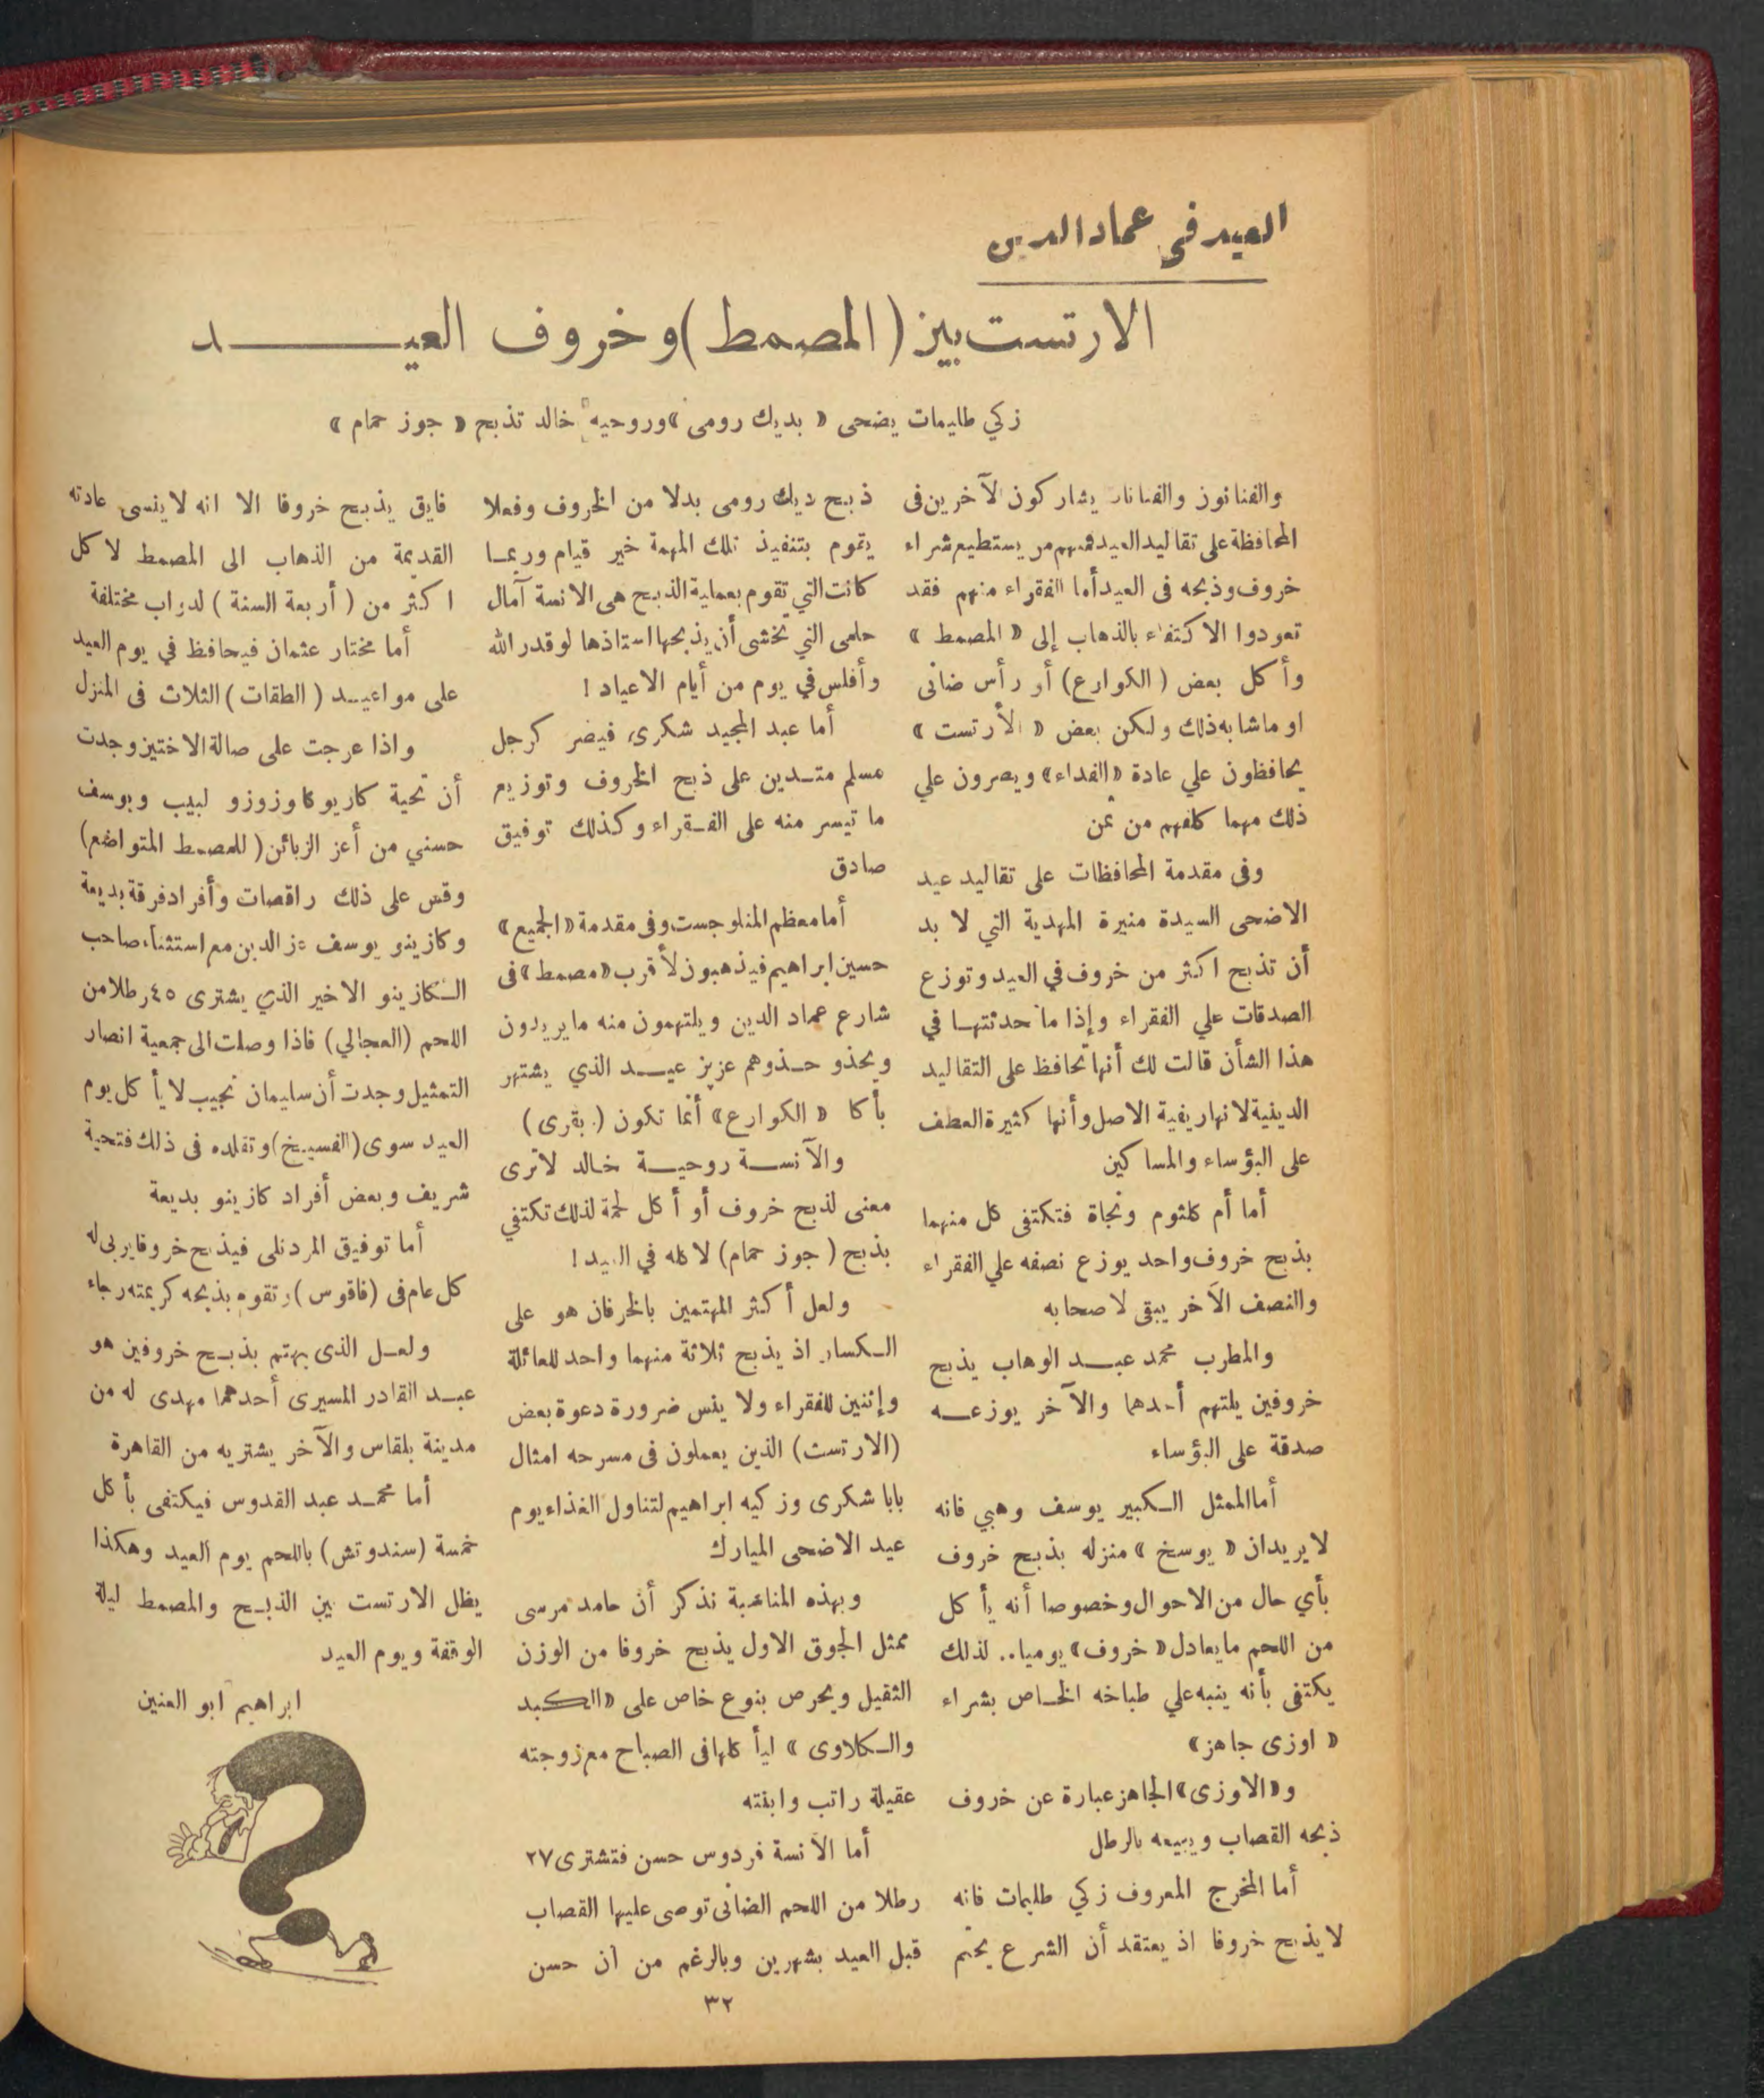 العيد في عماد الدين
الارتست بين (المصمط) وخروف العيد
زكي طليمات يضحى « بديك رومى » وروحيه خالد تذبح « جوز حمام »
والفنانون والفنانات يشاركون الآخرين فى
المحافظة على تقاليد العيد فمنهم من يستطيع شراء
خروف وذبحه فى العيد أما الفقراء منهم فقد
تعودوا الاكتفاء بالذهاب إلى « المصمط »
وأكل بعض (الكوارع) أو رأس ضانى
او ماشابه ذلك ولكن بعض « الأرتست »
يحافظون علي عادة «الفداء» ويصرون علي
ذلك مهما كلفهم من ثمن
وفى مقدمة المحافظات على تقاليد عيد
الاضحى السيدة منيرة المهدية التي لا بد
أن تذبح اكثر من خروف في العيد وتوزع
الصدقات علي الفقراء وإذا ما حدثتها في
هذا الشأن قالت لك أنها تحافظ على التقاليد
الدينية لانها ريفية الاصل وأنها كثيرة العطف
على البؤساء والمساكين
أما أم كلثوم ونجاة فتكتفى كل منهما
بذبح خروف واحد يوزع نصفه علي الفقراء
والنصف الآخر يبقى لاصحابه
والمطرب محمد عبد الوهاب يذبح
خروفين يلتهم أحدهما والآخر يوزعه
صدقة على البؤساء
أما الممثل الكبير يوسف وهبي فانه
لا يريد ان « يوسخ » منزله بذبح خروف
بأي حال من الاحوال وخصوصا أنه يأكل
من اللحم ما يعادل « خروف » يوميا .. لذلك
يكتفى بأنه ينبه علي طباخه الخاص بشراء
« اوزى جاهز »
و « الاوزى » الجاهز عبارة عن خروف
ذبحه القصاب ويبيعه بالرطل
أما المخرج المعروف زكي طليمات فانه
لا يذبح خروفا اذ يعتقد أن الشرع يحتم
ذبح ديك رومى بدلا من الخروف وفعلا
يقوم بتنفيذ تلك المهمة خير قيام وربما
كانت التي تقوم بعملية الذبح هى الانسة آمال
حلمى التي تخشى أن يذبحها استاذها لو قدر الله
وأفلس في يوم من أيام الاعياد !
أما عبد المجيد شكرى فيصر كرجل
مسلم متدين على ذبح الخروف وتوزيع
ما تيسر منه على الفقراء وكذلك توفيق
صادق
أما معظم المنلوجست وفى مقدمة « الجميع »
حسين ابراهيم فيذهبون لأقرب « مصمط » فى
شارع عماد الدين ويلتهمون منه ما يريدون
ويحذو حذوهم عزيز عيد الذي يشتهر
بأكا « الكوارع » أنما تكون (بقرى)
والآنسة روحية خالد لا ترى
معنى لذبح خروف أو أكل لحمة لذلك تكتفي
بذبح (جوز حمام) لاكله في العيد !
ولعل أكثر المهتمين بالخرفان هو على
الكسار اذ يذبح ثلاثة منهما واحد للعائلة
وإثنين للفقراء ولا ينس ضرورة دعوة بعض
(الارتست) الذين يعملون فى مسرحه امثال
بابا شكرى وزكيه ابراهيم لتناول الغذاء يوم
عيد الاضحى المبارك
وبهذه المناسبة نذكر أن حامد مرسى
ممثل الجوق الاول يذبح خروفا من الوزن
الثقيل ويحرص بنوع خاص على « الكبد
والكلاوى » ليأكلها فى الصباح مع زوجته
عقيلة راتب وابنته
أما الآنسة فردوس حسن فتشترى ٢٧
رطلا من اللحم الضانى توصى عليها القصاب
قبل العيد بشهرين وبالرغم من أن حسن
فايق يذبح خروفا الا انه لا ينسى عادته
القديمة من الذهاب الى المصمط لاكل
اكثر من (أربعة السنة) لدواب مختلفة
أما مختار عثمان فيحافظ في يوم العيد
على مواعيد (الطقات) الثلاث فى المنزل
واذا عرجت على صالة الاختين وجدت
أن تحية كاريوكا وزوزو لبيب ويوسف
حسني من أعز الزبائن (للمصمط المتواضع)
وقس على ذلك راقصات وأفراد فرقة بديعة
وكازينو يوسف عز الدين مع استثناء صاحب
الكازينو الاخير الذي يشترى ٤٥ رطلا من
اللحم (العجالي) فاذا وصلت الى جمعية انصار
التمثيل وجدت أن سليمان نجيب لا يأكل يوم
العيد سوى (الفسيخ) وتقلده فى ذلك فتحية
شريف وبعض أفراد كازينو بديعة
أما توفيق المردنلى فيذبح خروفا يربى له
كل عام فى (فاقوس) وتقوم بذبحه كريمته رجاء
ولعل الذى يهتم بذبح خروفين هو
عبد القادر المسيرى أحدهما مهدى له من
مدينة بلقاس والآخر يشتريه من القاهرة
أما محمد عبد القدوس فيكتفى بأكل
خمسة (سندوتش) باللحم يوم العيد وهكذا
يظل الارتست بين الذبح والمصمط ليلة
الوقفة ويوم العيد
ابراهيم ابو العنين
٣٢